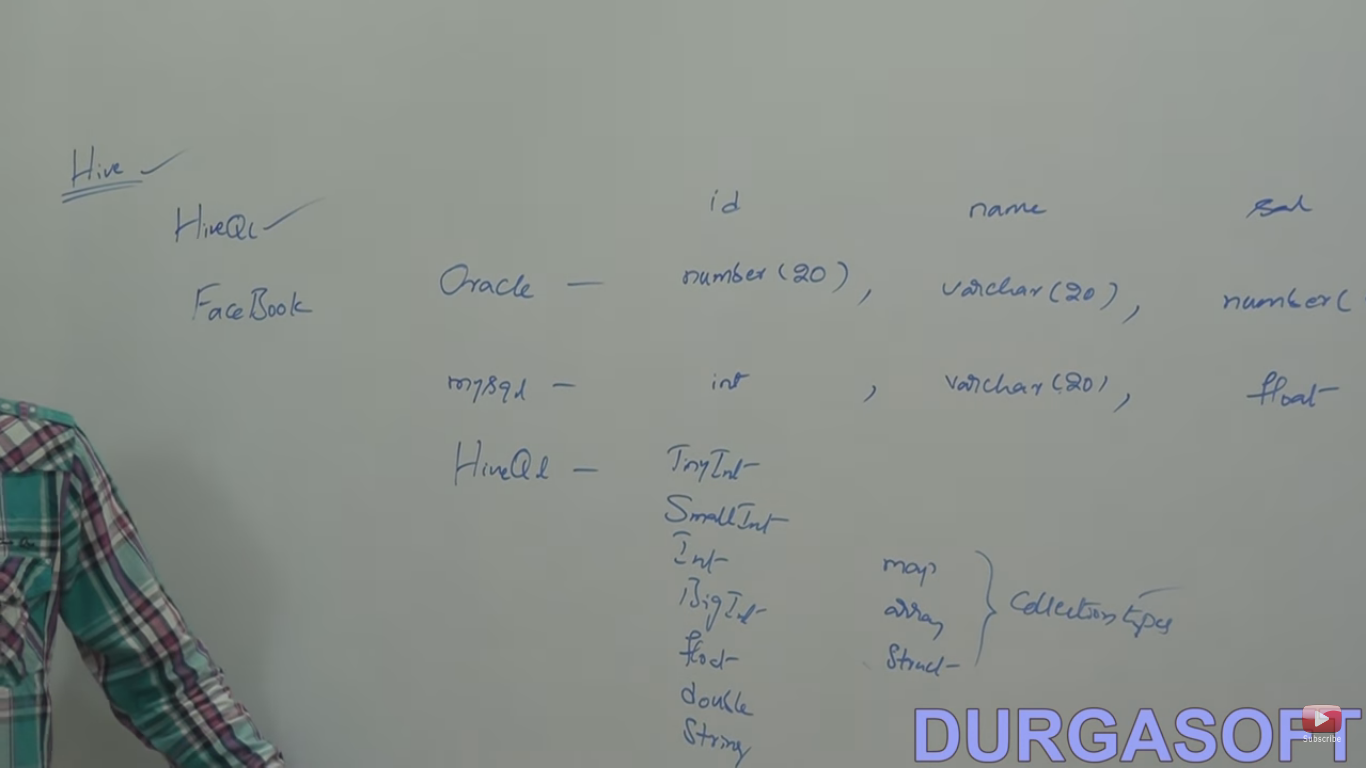 Hive
HiveQL
FaceBook
id name sal
Oracle — number(20), varchar(20), number(
mysql — int, varchar(20), float
HiveQl — TinyInt
SmallInt
Int
BigInt
float
double
String
map
array
Struct
Collection types
DURGASOFT
Subscribe